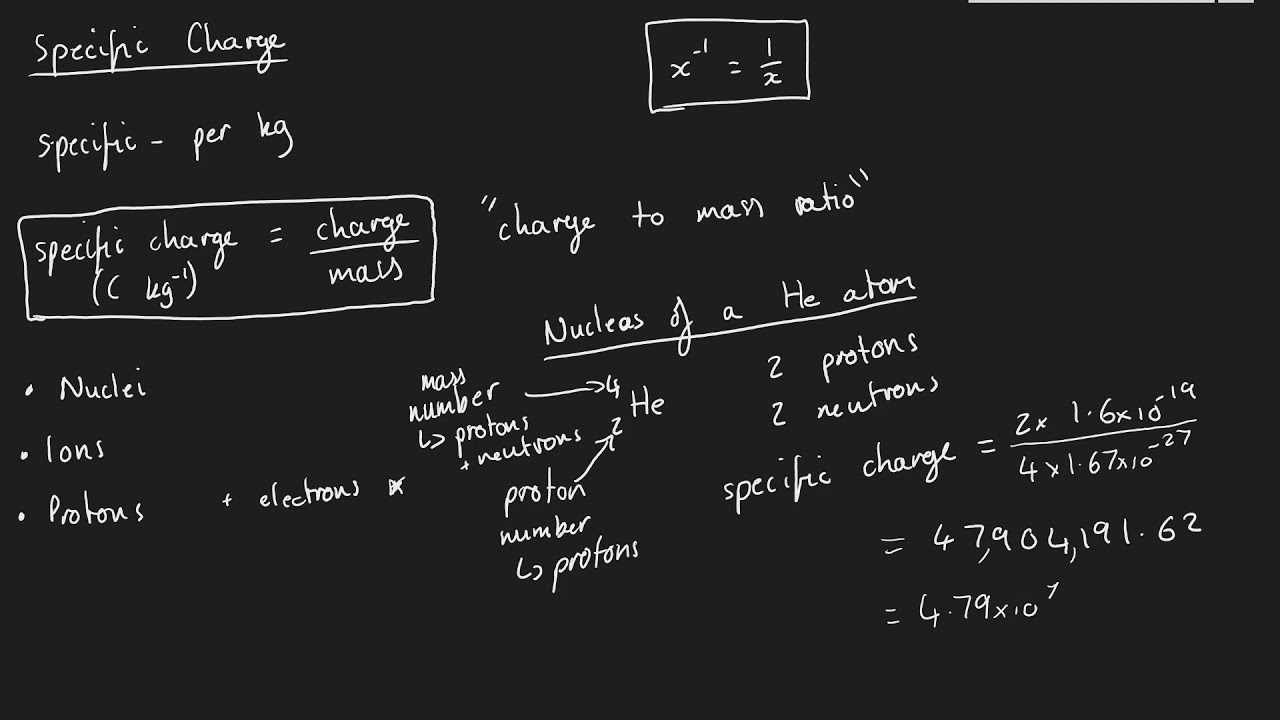 Specific Charge
x⁻¹ = 1/x
specific - per kg
specific charge = charge/mass
(C kg⁻¹)
"charge to mass ratio"
Nucleas of a He atom
• Nuclei
• Ions
• Protons + electrons
mass
number → 4
↳ protons
+ neutrons
2 He
proton
number
↳ protons
2 protons
2 neutrons
specific charge = 2 x 1.6x10⁻¹⁹ / 4 x 1.67x10⁻²⁷
= 47,904,191.62
= 4.79x10⁷